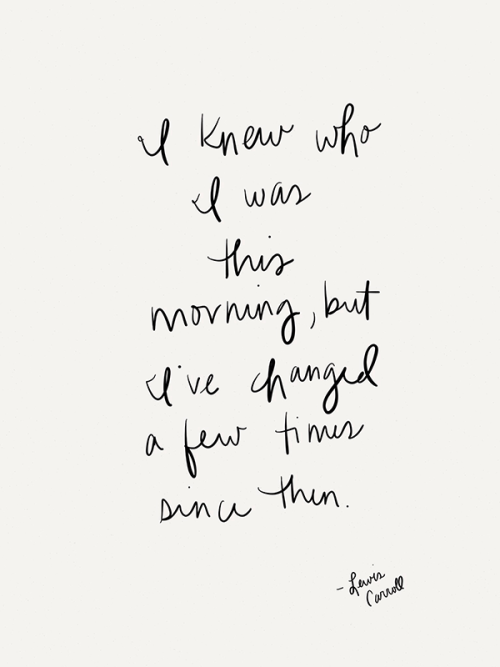 I knew who
I was
this
morning, but
I've changed
a few times
since then.
- Lewis
Carroll